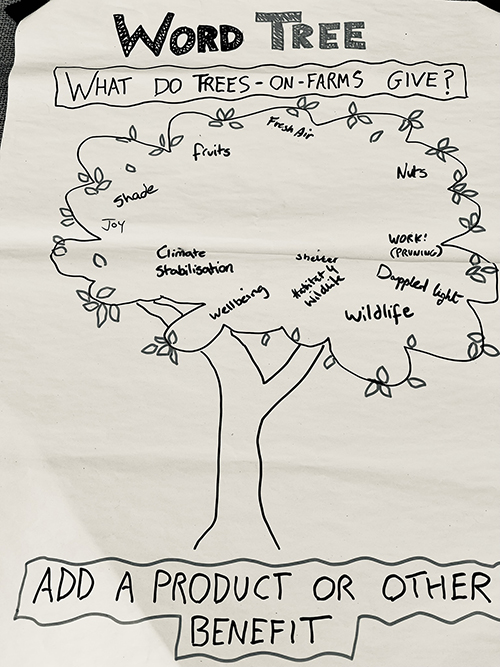 WORD TREE
WHAT DO TREES-ON-FARMS GIVE?
Fresh Air
fruits
Nuts
Shade
Joy
WORK!
(PRUNING)
Climate
Stabilisation
shelter
Habitat 4
Wildlife
Dappled light
Wellbeing
Wildlife
ADD A PRODUCT OR OTHER
BENEFIT